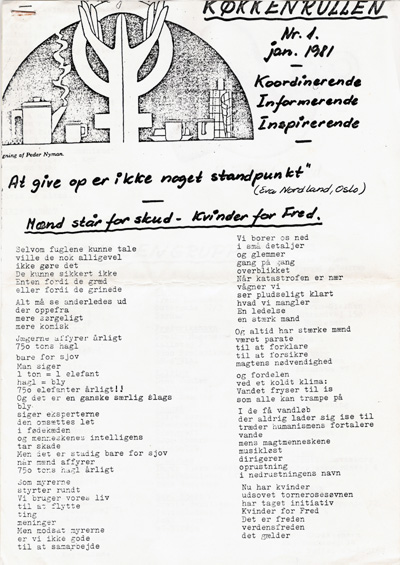 KØKKENRULLEN
Nr. 1.
jan. 1981
Koordinerende
Informerende
Inspirerende
gning af Peder Nyman.
At give op er ikke noget standpunkt"
(Eva Nordland, Oslo)
Mænd står for skud - Kvinder for Fred.
Selvom fuglene kunne tale
ville de nok alligevel
ikke gøre det
De kunne sikkert ikke
Enten fordi de græd
eller fordi de grinede
Alt må se anderledes ud
der oppefra
mere sørgeligt
mere komisk
Jægerne affyrer årligt
750 tons hagl
bare for sjov
Man siger
1 ton = 1 elefant
hagl = bly
750 elefanter årligt!!
Og det er en ganske særlig slags
bly
siger eksperterne
den omsættes let
i fødekæden
og menneskenes intelligens
tar skade
Men det er stadig bare for sjov
når mænd affyrer
750 tons hagl årligt
Som myrerne
styrter rundt
Vi bruger vores liv
til at flytte
ting
meninger
Men modsat myrerne
er vi ikke gode
til at samarbejde
Vi borer os ned
i små detaljer
og glemmer
gang på gang
overblikket
Når katastrofen er nær
vågner vi
ser pludseligt klart
hvad vi mangler
En ledelse
en stærk mand
Og altid har stærke mænd
været parate
til at forklare
til at forsikre
magtens nødvendighed
og fordelen
ved et koldt klima:
Vandet fryser til is
som alle kan trampe på
I de få vandløb
der aldrig lader sig ise til
træder humanismens fortalere
vande
mens magtmenneskene
musikløst
dirigerer
oprustning
i nedrustningens navn
Nu har kvinder
udsovet tornerosesøvnen
har taget initiativ
Kvinder for Fred
Det er freden
verdensfreden
det gælder